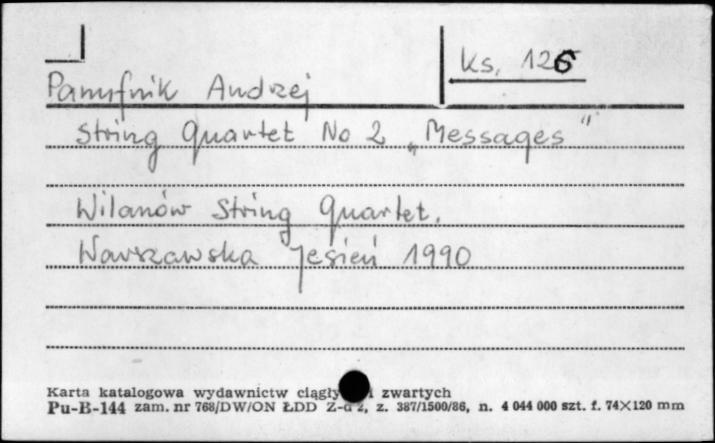 Ks. 126
Panufnik Andrzej
String Quartet No 2 „Messages”
Wilanów String Quartet.
Warszawska Jesień 1990
Karta katalogowa wydawnictw ciągły i zwartych
Pu-B-144 zam. nr 768/DW/ON ŁDD Z-d 2, z. 387/1500/86, n. 4 044 000 szt. f. 74×120 mm